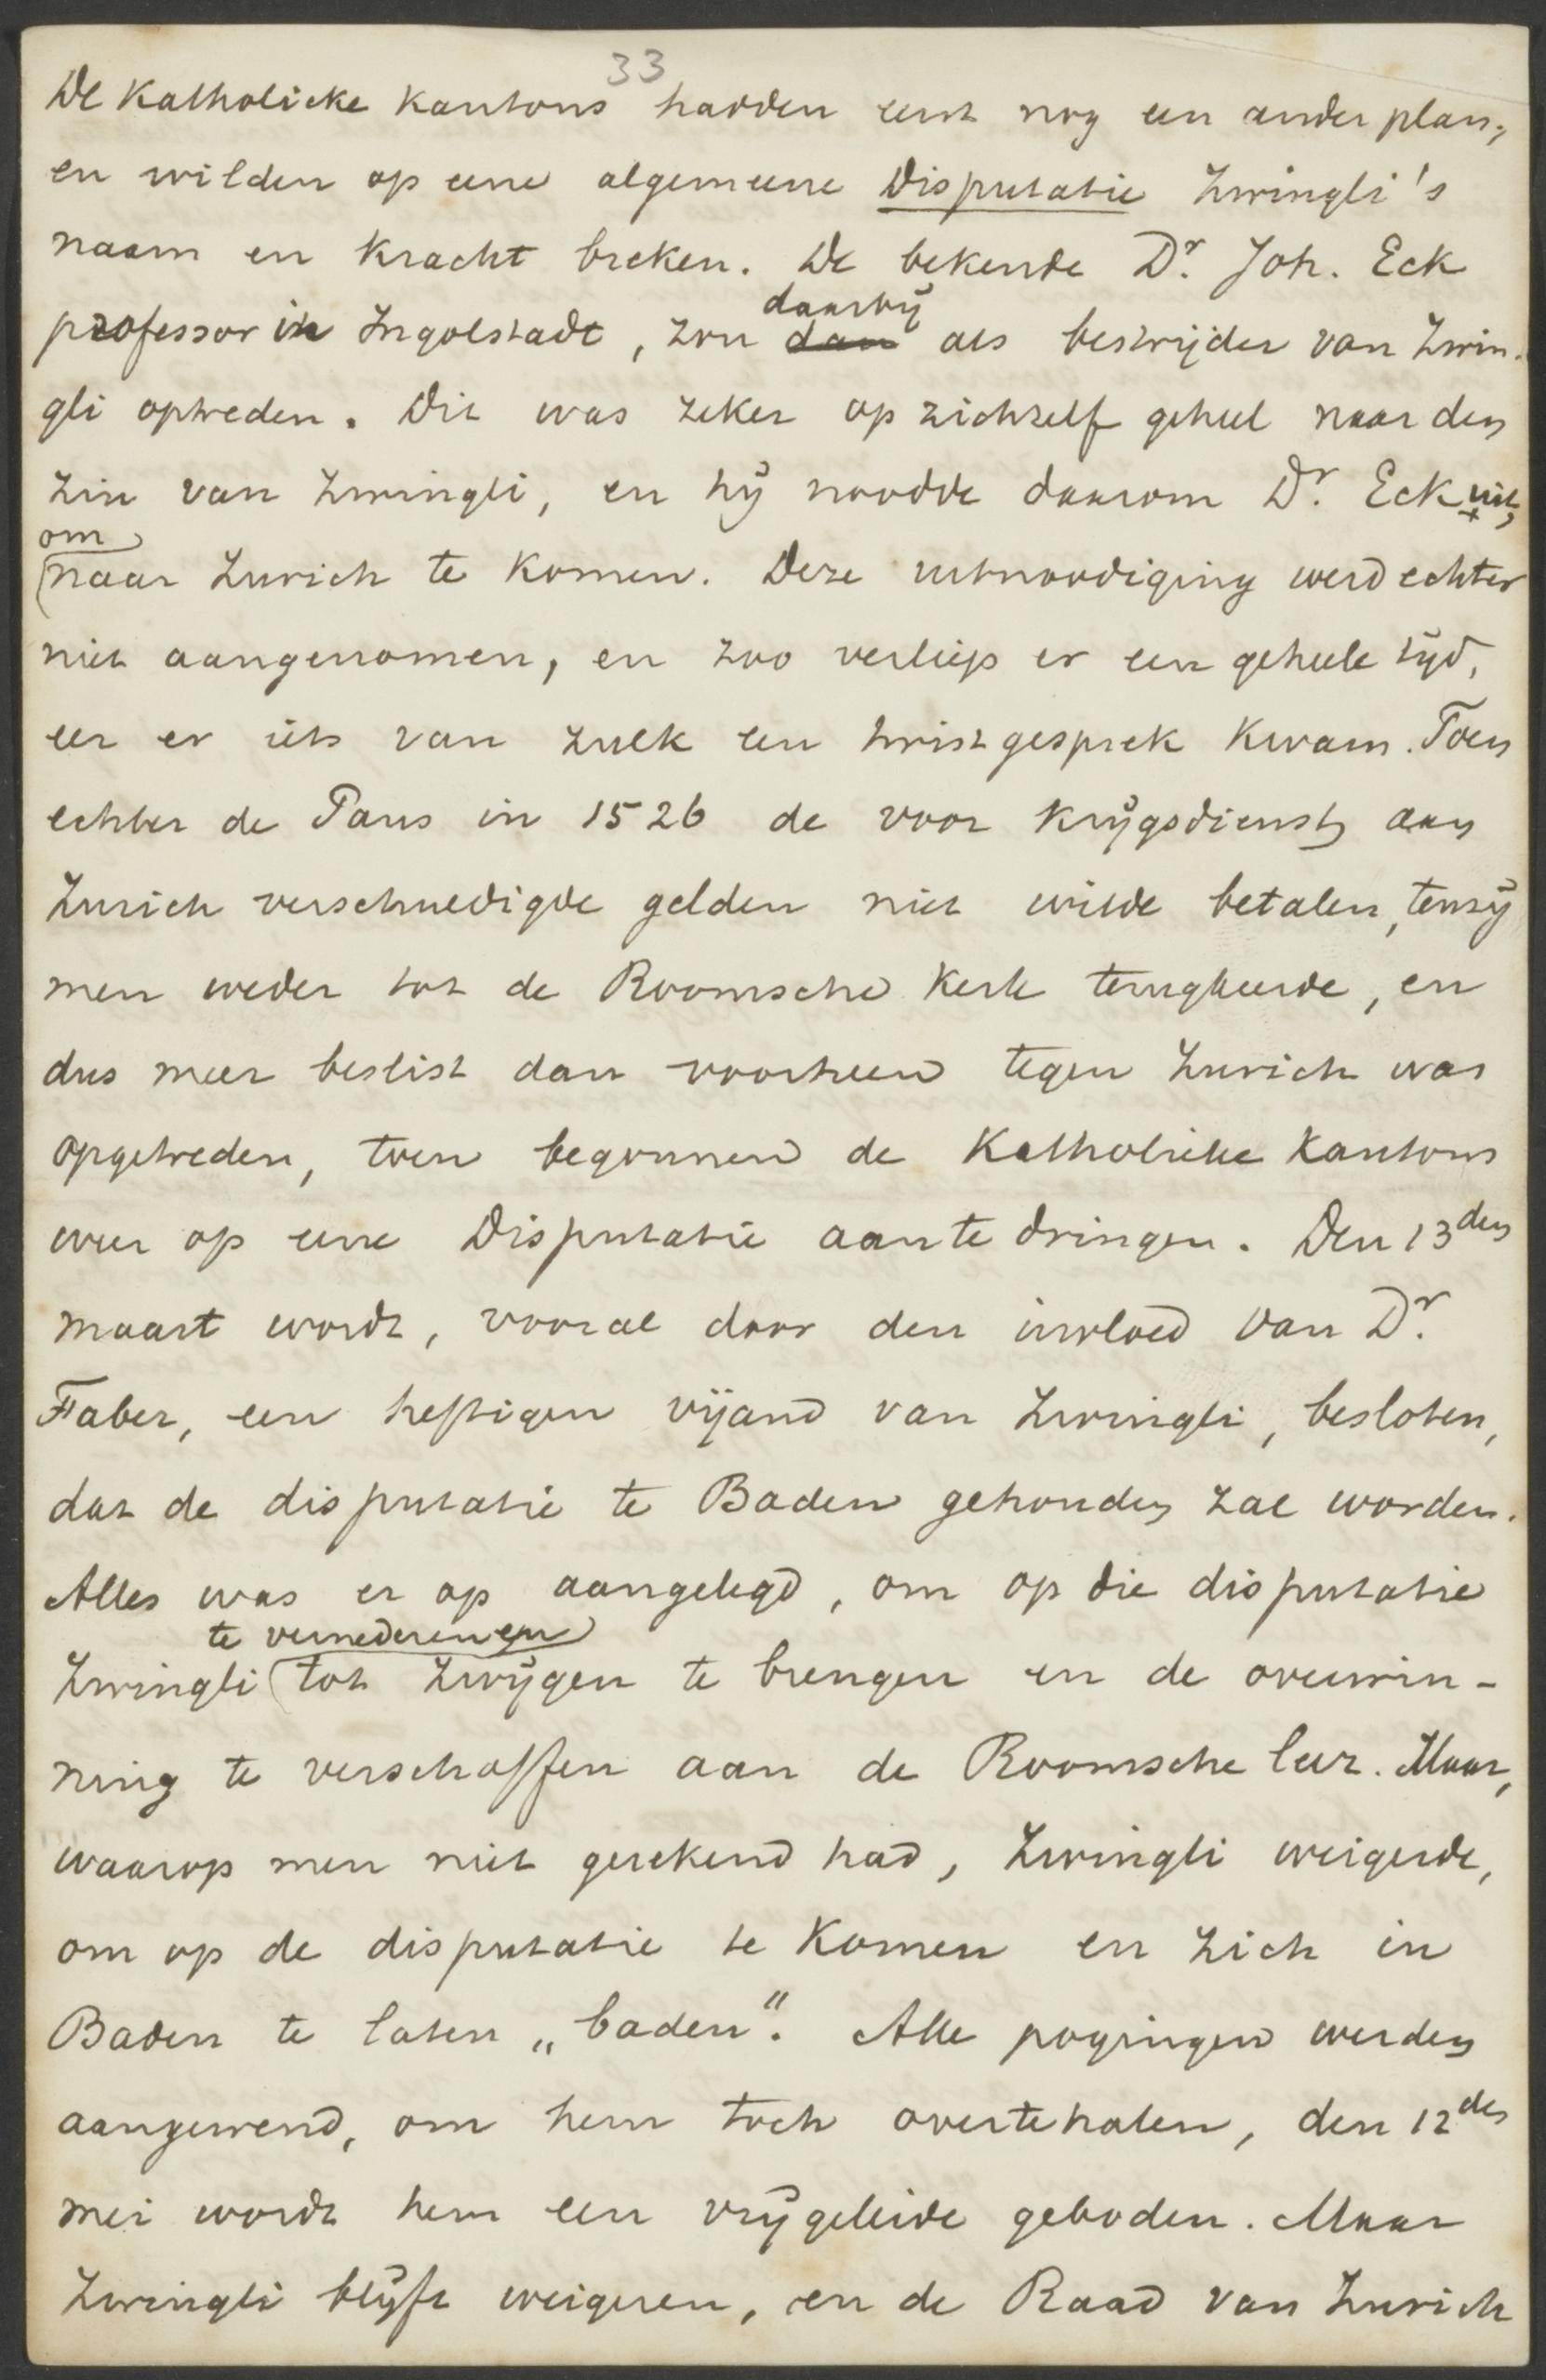 33
De Katholieke Kantons hadden eerst nog een ander plan,
en wilden op eene algemeene Disputatie Zwingli's
naam en Kracht breken. De bekende Dr. Joh. Eck
daarbij
professor in Ingolstadt, zou dan als bestrijder van Zwin-
gli optreden. Dit was zeker op zichzelf geheel naar den
zin van Zwingli, en hij noodde daarom Dr. Eck uit,
om
naar Zurich te Komen. Deze uitnoodiging werd echter
niet aangenomen, en zoo verliep er een geheele tijd,
eer er iets van zulk een twistgesprek Kwam. Toen
echter de Paus in 1526 de voor Krijgsdienst aan
Zurich verschuldigde gelden niet wilde betalen, tenzij
men weder tot de Roomsche Kerk terugkeerde, en
dus meer beslist dan voorheen tegen Zurich was
opgetreden, toen begonnen de Katholieke Kantons
weer op eene Disputatie aan te dringen. Den 13den
maart wordt, vooral door den invloed van Dr.
Faber, een heftigen vijand van Zwingli, besloten,
dat de disputatie te Baden gehouden zal worden.
Alles was er op aangelegd, om op die disputatie
te vernederen en
Zwingli tot zwijgen te brengen en de overwin-
ning te verschaffen aan de Roomsche leer. Maar,
waarop men niet gerekend had, Zwingli weigerde,
om op de disputatie te Komen en zich in
Baden te laten „baden". Alle pogingen werden
aangewend, om hem toch overtehalen, den 12den
mei wordt hem een vrijgeleide geboden. Maar
Zwingli blijft weigeren, en de Raad van Zurich